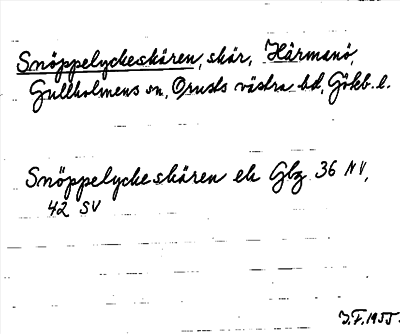 Snöppelyckeskären, skär, Härmanö,
Gullholmens sn, Orusts västra hd, Gökb. l.
Snöppelyckeskären ek Gbg 36 NV,
42 SV
J.F. 1955.